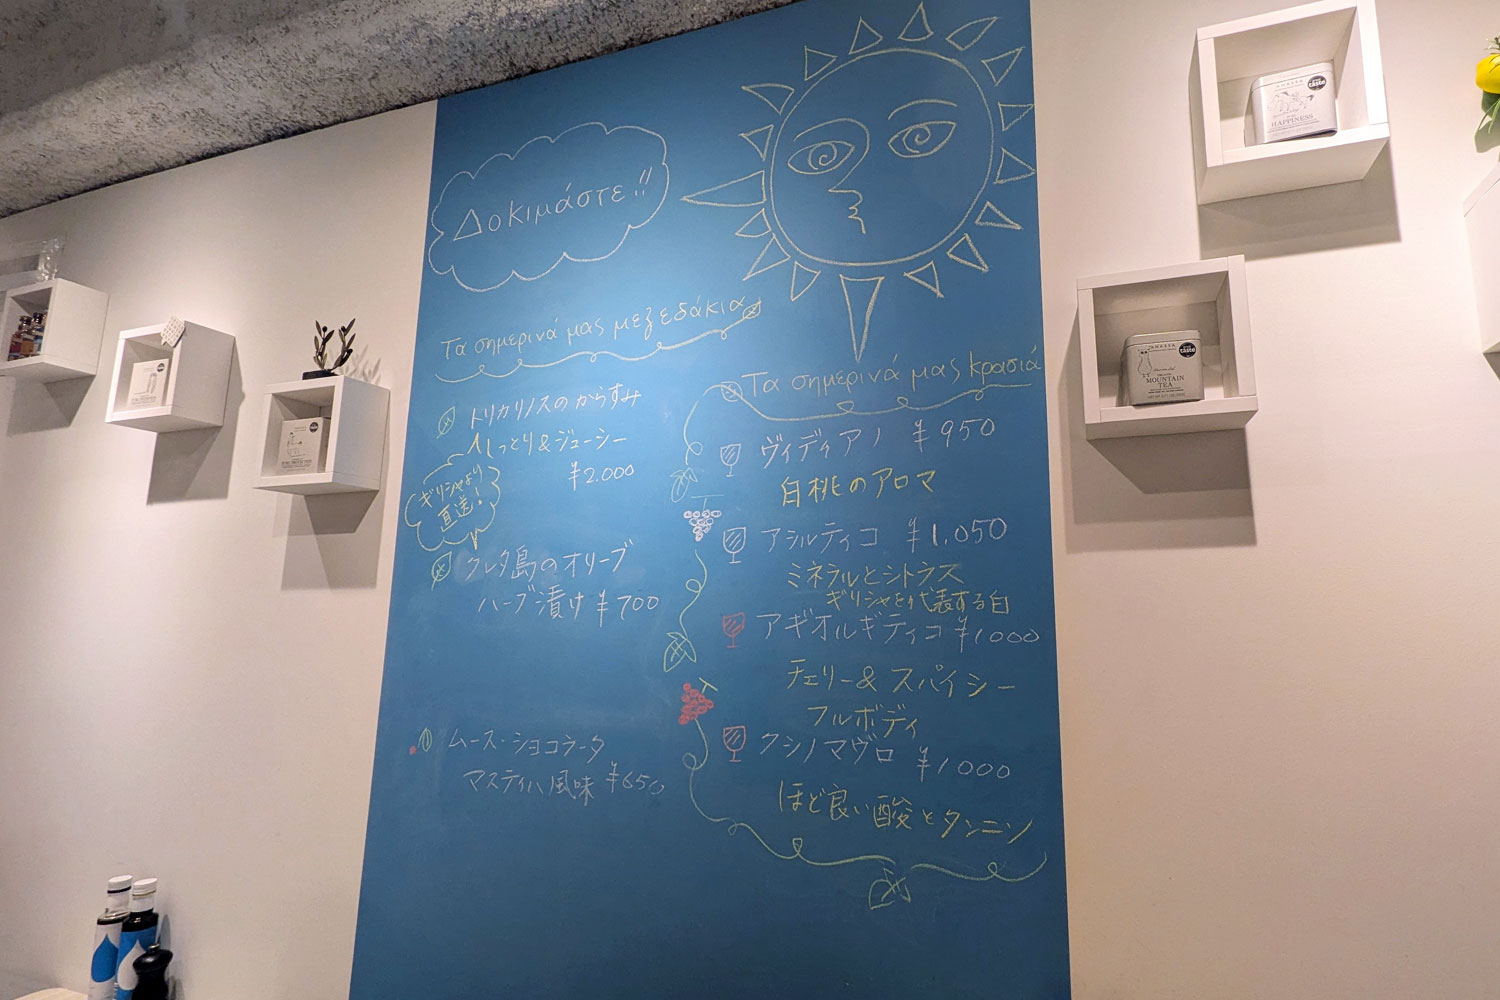 Δοκιμάστε!!
Τα σημερινά μας μεζεδάκια
トリカリノスのからすみ
しっとり&ジューシー
¥2.000
ギリシャより
直送!
クレタ島のオリーブ
ハーブ漬け ¥700
ムース・ショコラータ
マスティハ風味 ¥650
Τα σημερινά μας κρασιά
ヴィディアノ ¥950
白桃のアロマ
アシルティコ ¥1,050
ミネラルとシトラス
ギリシャを代表する白
アギオルギティコ ¥1000
チェリー&スパイシー
フルボディ
クシノマヴロ ¥1000
ほど良い酸とタンニン
ANASSA
HAPPINESS
great taste
ANASSA
MOUNTAIN
TEA
taste